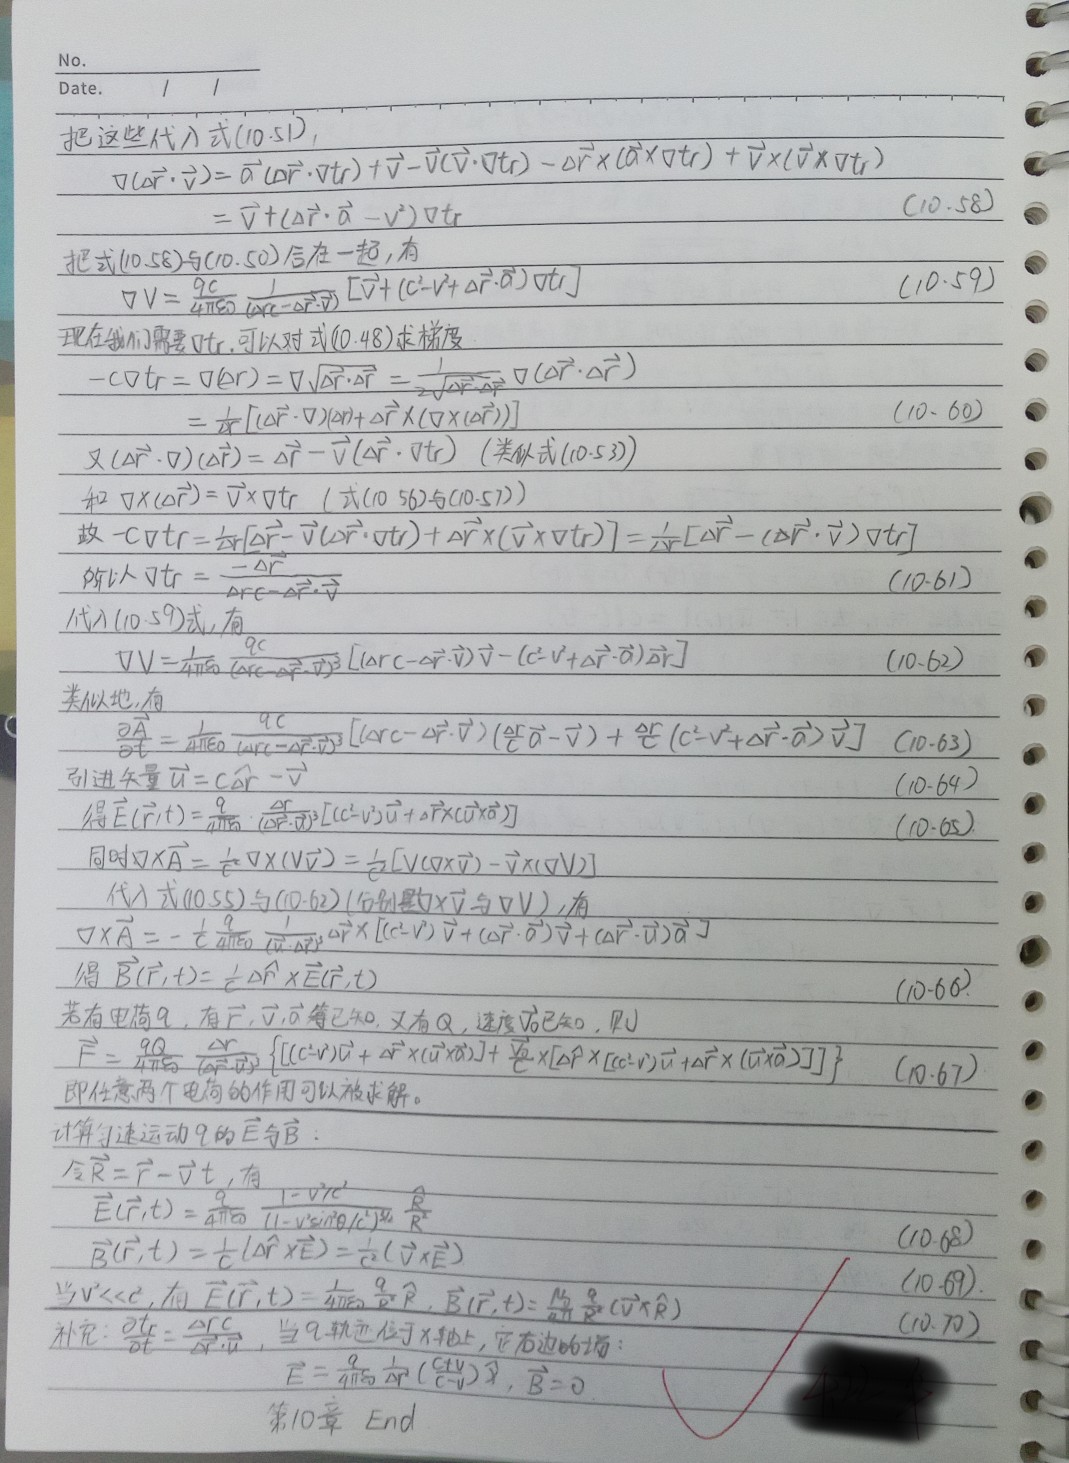 No.
Date. / /
把这些代入式(10.51),
∇(Δr⃗·v⃗)=a⃗(Δr⃗·∇tr)+v⃗-v⃗(v⃗·∇tr)-Δr⃗×(a⃗×∇tr)+v⃗×(v⃗×∇tr)
=v⃗+(Δr⃗·a⃗-v²)∇tr (10.58)
把式(10.58)与(10.50)合在一起,有
∇V=qc/4πε0 1/(Δrc-Δr⃗·v⃗)[v⃗+(c²-v²+Δr⃗·a⃗)∇tr] (10.59)
现在我们需要∇tr,可以对式(10.48)求梯度
-c∇tr=∇(Δr)=∇√(Δr⃗·Δr⃗)=1/(2√(Δr⃗·Δr⃗))∇(Δr⃗·Δr⃗)
=1/Δr[(Δr⃗·∇)(Δr)+Δr⃗×(∇×(Δr⃗))] (10-60)
又(Δr⃗·∇)(Δr⃗)=Δr⃗-v⃗(Δr⃗·∇tr) (类似式(10.53))
和∇×(Δr⃗)=v⃗×∇tr (式(10 56)与(10.57))
故-c∇tr=1/Δr[Δr⃗-v⃗(Δr⃗·∇tr)+Δr⃗×(v⃗×∇tr)]=1/Δr[Δr⃗-(Δr⃗·v⃗)∇tr]
所以∇tr=-Δr⃗/(Δrc-Δr⃗·v⃗) (10-61)
代入(10.59)式,有
∇V=1/4πε0 qc/(Δrc-Δr⃗·v⃗)³[(Δrc-Δr⃗·v⃗)v⃗-(c²-v²+Δr⃗·a⃗)Δr⃗] (10-62)
类似地,有
∂A⃗/∂t=1/4πε0 qc/(Δrc-Δr⃗·v⃗)³[(Δrc-Δr⃗·v⃗)(Δr/c a⃗-v⃗)+Δr/c(c²-v²+Δr⃗·a⃗)v⃗] (10-63)
引进矢量u⃗=cΔr̂-v⃗ (10-64)
得E⃗(r⃗,t)=q/4πε0·Δr/(Δr⃗·u⃗)³[(c²-v²)u⃗+Δr⃗×(u⃗×a⃗)] (10-65)
同时∇×A⃗=1/c²∇×(Vv⃗)=1/c²[V(∇×v⃗)-v⃗×(∇V)]
代入式(10.55)与(10.62)(分别是∇×v⃗与∇V),有
∇×A⃗=-1/c q/4πε0 1/(u⃗·Δr⃗)³Δr⃗×[(c²-v²)v⃗+(Δr⃗·a⃗)v⃗+(Δr⃗·u⃗)a⃗]
得B⃗(r⃗,t)=1/cΔr̂×E⃗(r⃗,t) (10-66)
若有电荷q,有r⃗,v⃗,a⃗等已知,又有Q,速度v⃗0已知,则
F⃗=qQ/4πε0 Δr/(Δr⃗·u⃗)³{[(c²-v²)u⃗+Δr⃗×(u⃗×a⃗)]+v⃗0/c×[Δr̂×[(c²-v²)u⃗+Δr⃗×(u⃗×a⃗)]]} (10-67)
即任意两个电荷的作用可以被求解。
计算匀速运动q的E⃗与B⃗:
令R⃗=r⃗-v⃗t,有
E⃗(r⃗,t)=q/4πε0 (1-v²/c²)/(1-v²sin²θ/c²)^(3/2) R̂/R² (10-68)
B⃗(r⃗,t)=1/c(Δr̂×E⃗)=1/c²(v⃗×E⃗) (10-69)
当v²<<c²,有E⃗(r⃗,t)=1/4πε0 q/R² R̂,B⃗(r⃗,t)=μ0/4π q/R²(v⃗×R̂) (10-70)
补充:∂tr/∂t=Δrc/Δr⃗·u⃗,当q轨迹位于x轴上,它右边的场:
E⃗=q/4πε0 1/Δr²((c+v)/(c-v))x̂,B⃗=0
第10章 End